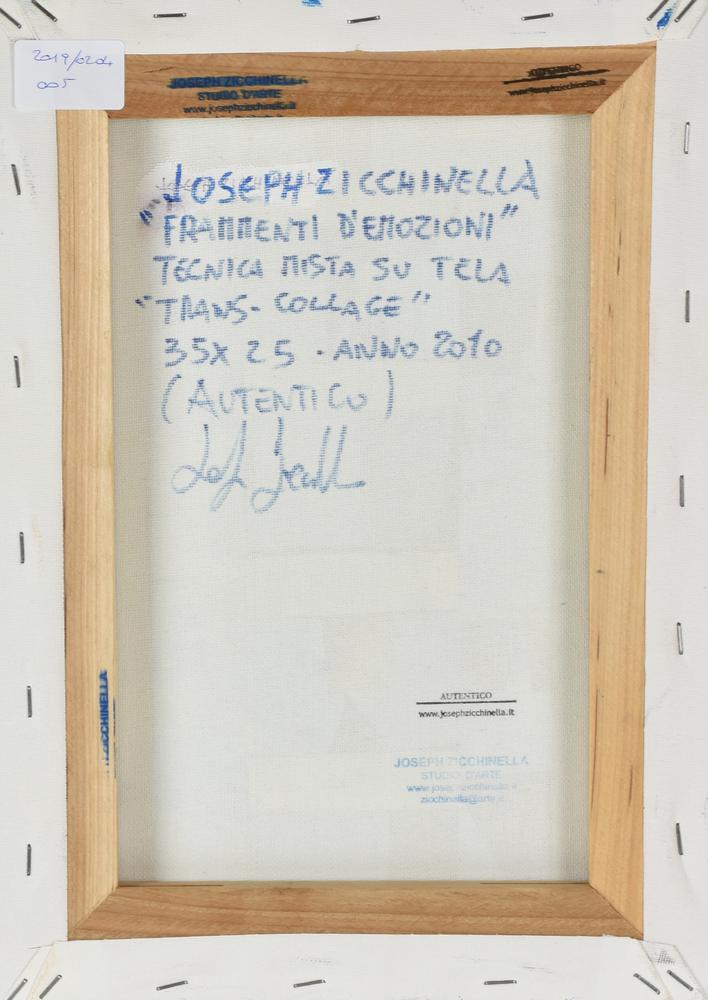 2019/0204
005
JOSEPH ZICCHINELLA
STUDIO D'ARTE
www.josephzicchinella.it
AUTENTICO
www.josephzicchinella.it
JOSEPH ZICCHINELLA
"FRAMMENTI D'EMOZIONI"
TECNICA MISTA SU TELA
"TRANS-COLLAGE"
35X25 - ANNO 2010
(AUTENTICO)
ZICCHINELLA
AUTENTICO
www.josephzicchinella.it
JOSEPH ZICCHINELLA
STUDIO D'ARTE
www.josephzicchinella.it